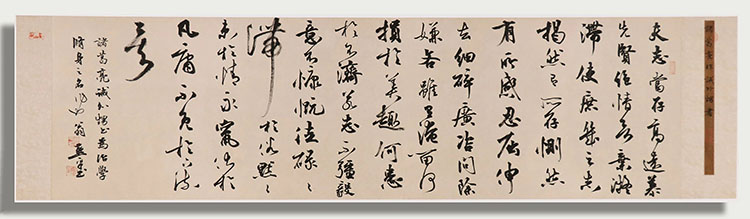 諸葛亮誡外甥書
夫志當存高遠慕
先賢絶情欲棄凝
滯使庶幾之志
揭然有所存惻然
有所感忍屈伸
去細碎廣咨問除
嫌吝雖有淹留何
損於美趣何患
於不濟若志不彊毅
意不慷慨徒碌碌
滯於俗默默
束於情永竄伏於
凡庸不免於下流
矣
諸葛亮誡外甥書為治學
修身之名